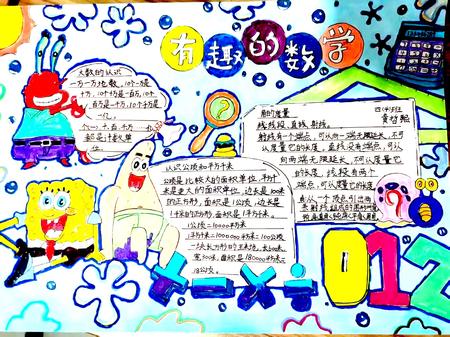 有趣的数学
大数的认识
一万一万地数,10个一万是
十万,10个十万是一百万,10个
一百万是一千万,10个一千万是
一亿。
个(一)、十、百、千、万……亿
都是计数单
位。
角的度量
线线段、直线、射线。
射线有一个端点,可以向一端无限延长,不可
以度量它的长度。直线没有端点,可以
向两端无限延长,不可以度量它
的长度。线段有两个
端点,可以度量它的长度。
认识公顷和平方千米
公顷是比较大的面积单位,平方千
米是更大的面积单位,边长是100米
的正方形,面积是1公顷,边长是
1千米的正方形,面积是1平方千米。
1公顷=10000平方米
1平方千米=1000000平方米=100公顷
宽300米,面积是180000平方米=
18公顷。
+-×÷
012